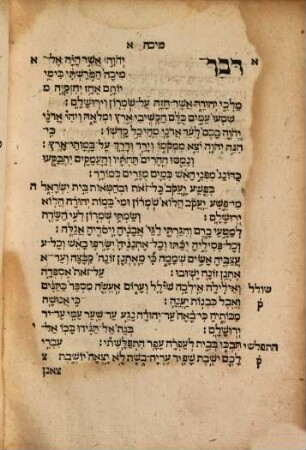 מיכה א
א דבר יהוה אשר היה אל א
מיכה המרשתי בימי
יותם אחז יחזקיה מ
מלכי יהודה אשר חזה על שמרון וירושלם :
שמעו עמים כלם הקשיבי ארץ ומלאה ויהי אדני
יהוה בכם לעד אדני מהיכל קדשו : כי
הנה יהוה יצא ממקומו וירד ודרך על במותי ארץ :
ונמסו ההרים תחתיו והעמקים יתבקעו
כדונג מפני האש כמים מגרים במורד :
בפשע יעקב כל זאת ובחטאות בית ישראל ה
מי פשע יעקב הלוא שמרון ומי במות יהודה הלוא
ירושלם : ושמתי שמרון לעי השדה
למטעי כרם והגרתי לגי אבניה ויסדיה אגלה :
וכל פסיליה יכתו וכל אתנניה ישרפו באש וכל ע
עצביה אשים שממה כי מאתנן זונה קבצה ועד א
אתנן זונה ישובו : על זאת אספדה
שולל ואילילה אילכה שילל וערום אעשה מספד כתנים
ק ואבל כבנות יענה : כי אנושה
מכותיה כי באה עד יהודה נגע עד שער עמי עד יר
ירושלם : בגת אל תגידו בכו אל י
התפלשי תבכו בבית לעפרה עפר התפלשתי : עברי
ק לכם יושבת שפיר עריה בשת לא יצאה יושבת צ
צאנן